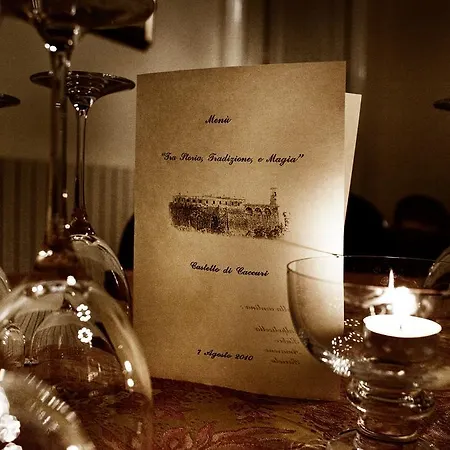 Menù
"Tra Storia, Tradizione, e Magia"
Castello di Caccuri
7 Agosto 2010